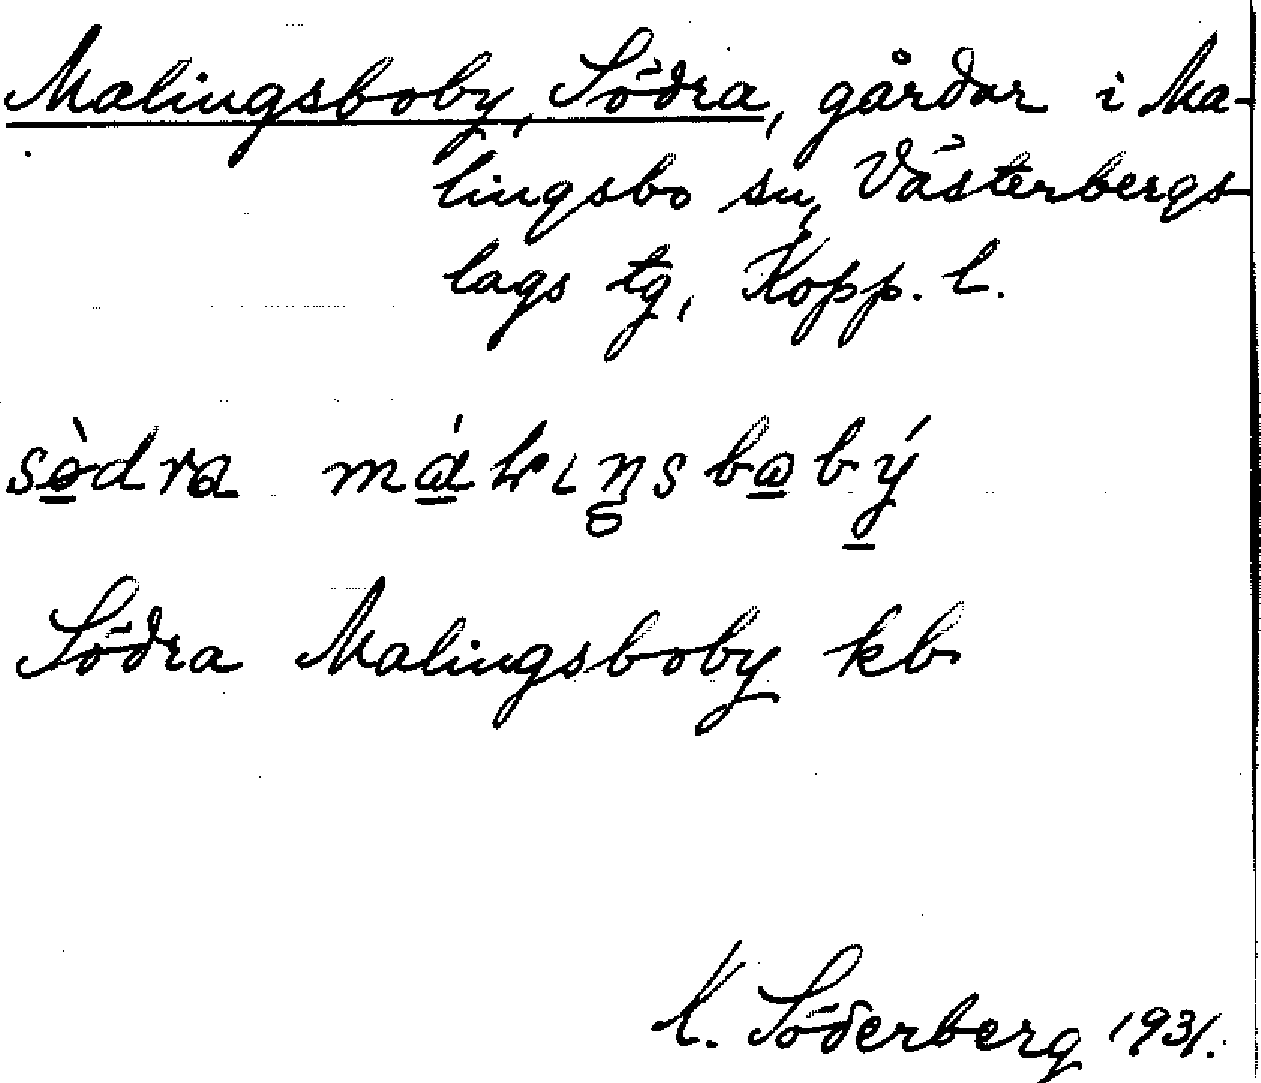 Malingsboby, Södra, gårdar i Ma-
lingsbo sn, Västerbergs
lags tg, Kopp. l.
Södra Malingsboby kb
K. Söderberg 1931.